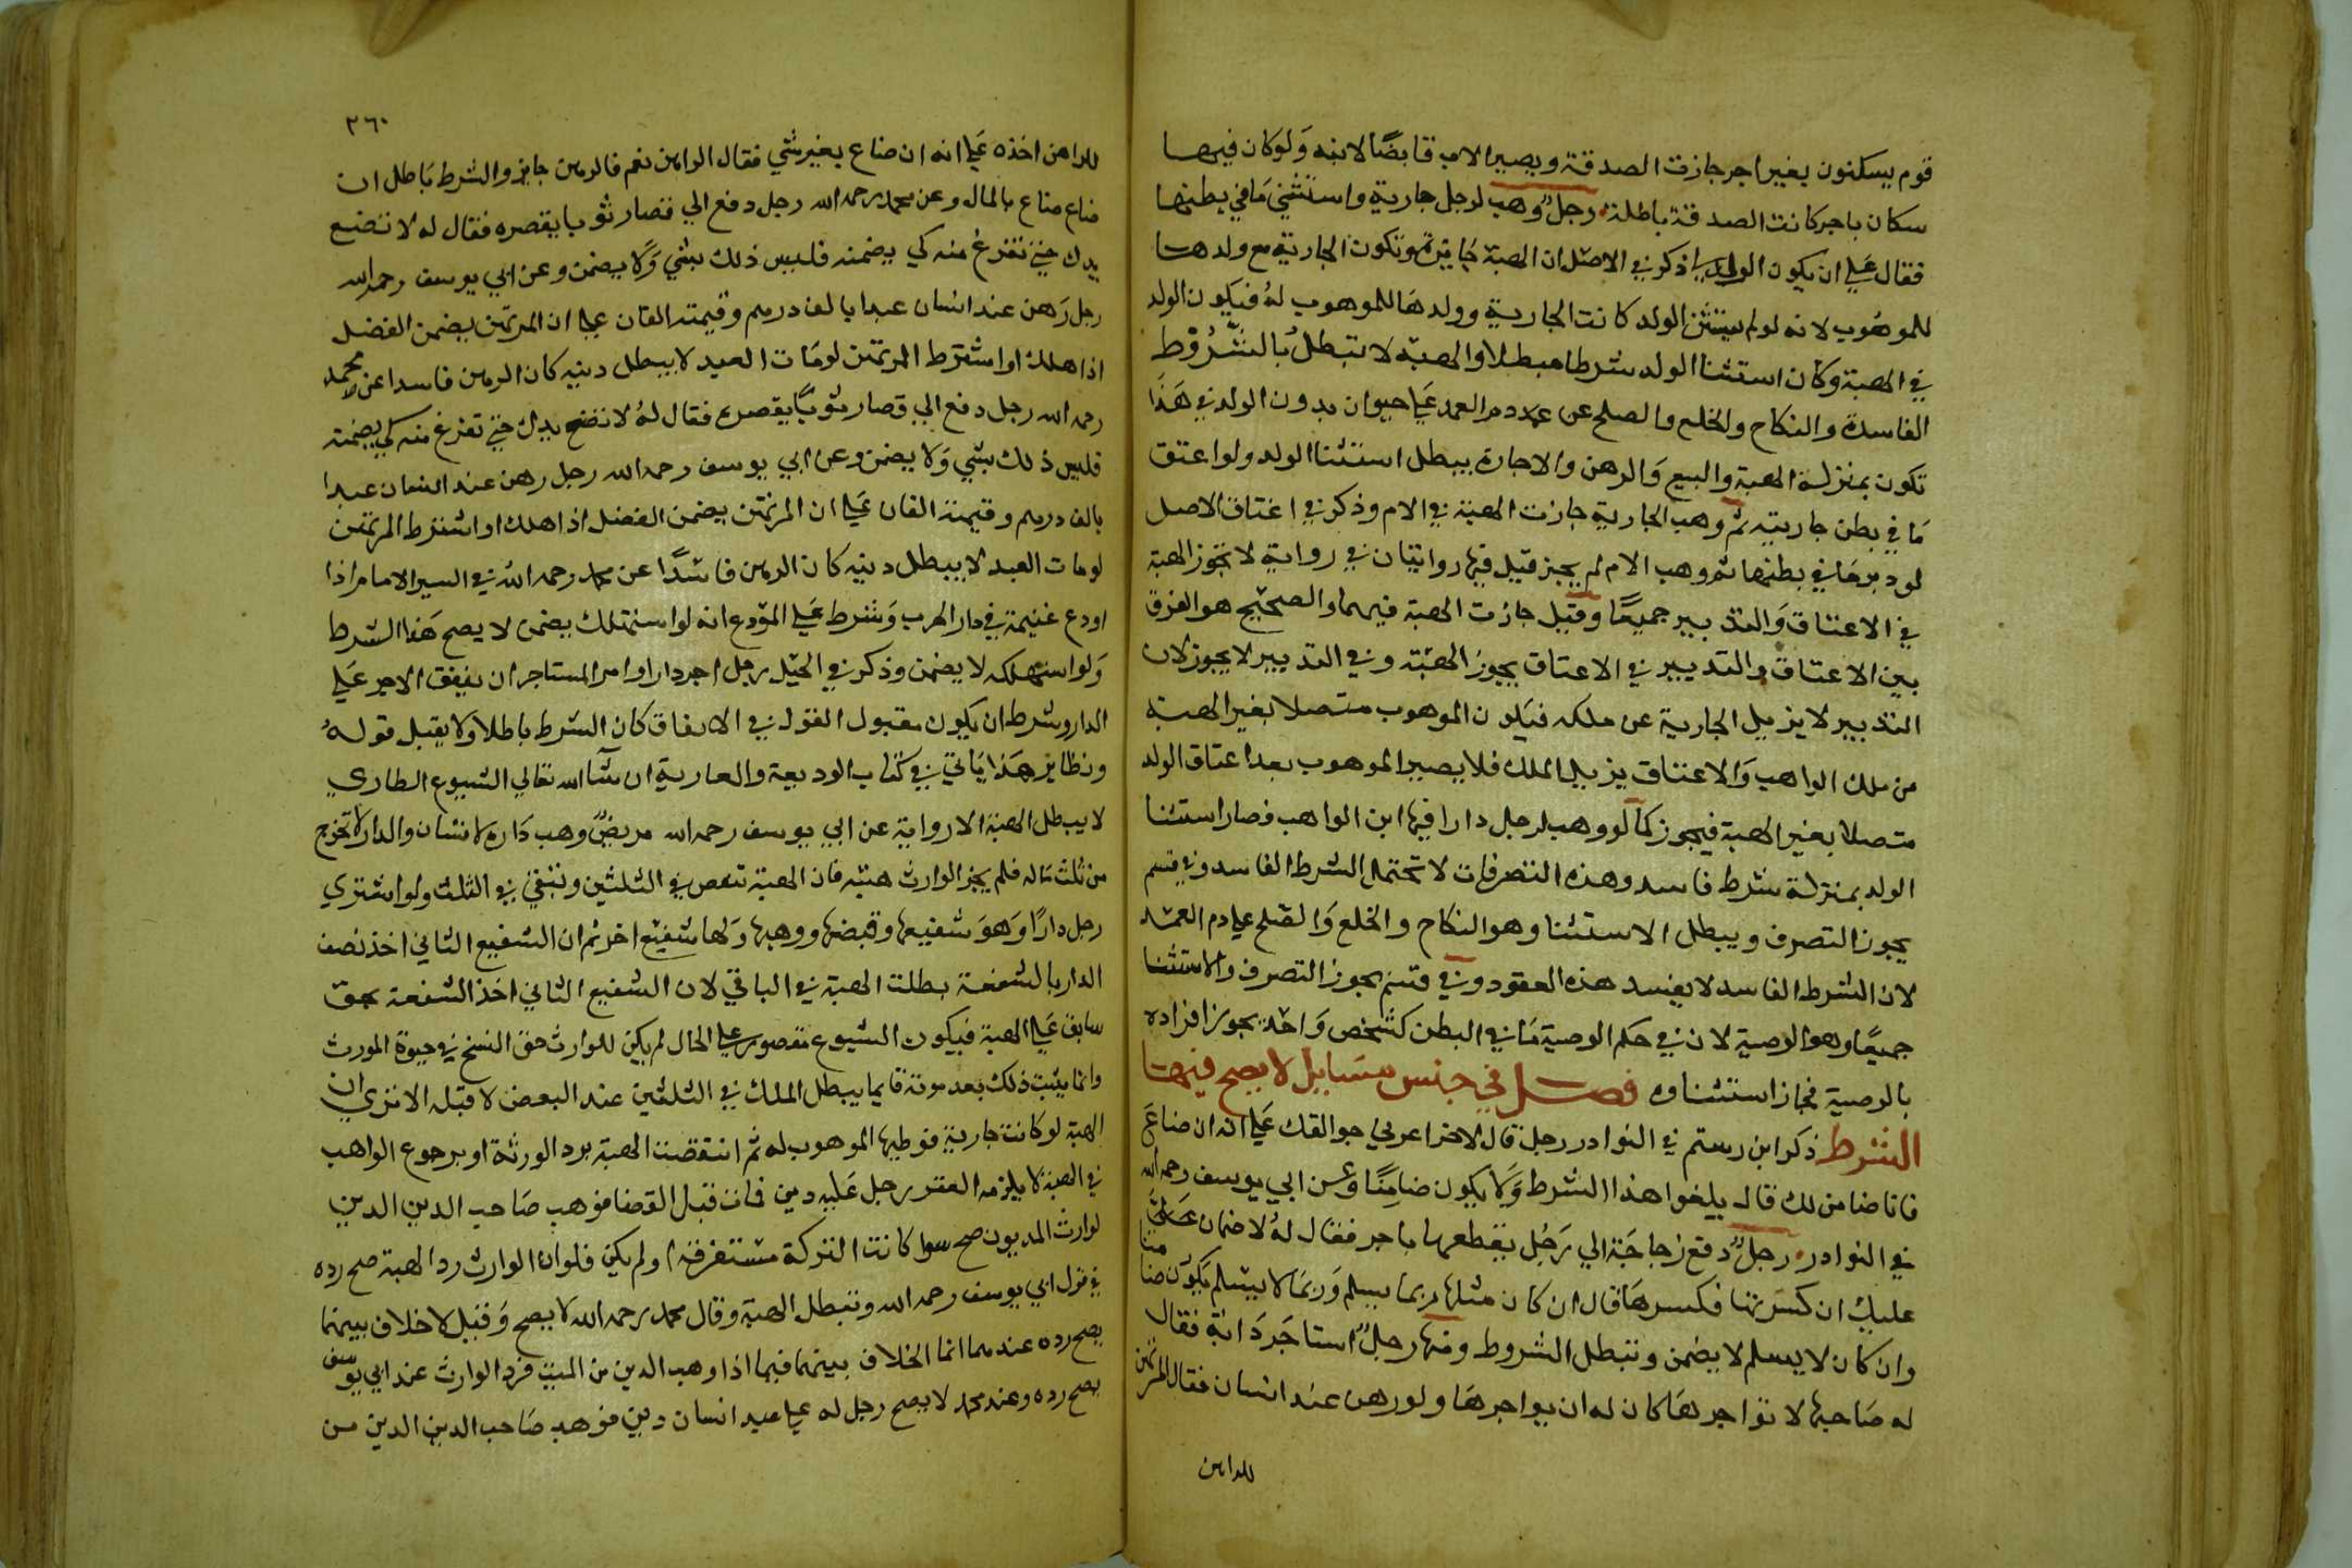 قوم يسكنون بغير اجر جازت الصدقة ويصير الاب قابضًا لابنه وَلوكان فيهما
سكان باجر كانت الصدقة باطلة رجلٌ وهب لرجل جارية واستثني مَا في بطنها
فقال علي ان يكون الولد لي ذكر في الاصل ان الهبة جايزة وتكون الجارية مع ولدها
للموهُوب لانه لو لم يستثن الولد كانت الجارية وولدهَا للموهوب لهُ فيكون الولد
في الهبة وكان استثنا الولد شرطا مبطلا والهبة لا تبطلُ بالشُّرُوْط
الفاسدة والنكاح والخلع والصلح عن دم العمد عَلي حيوان بدون الولد في هَذا
تكون بمنزلة الهبة والبيع وَالرهن والاجارة يبطل استثنا الولد ولو اعتق
مَا في بطن جاريته ثم وهب الجارية جازت الهبة في الام وذكر في اعتاق الاصل
لو دبر مَا في بطنها ثم وهب الام لم يجز قيل فيها روايتان في رواية لا تجوز الهبة
في الاعتاق وَالتدبير جميعًا وقيل جازت الهبة فيهما والصحيح هو الفرق
بين الاعتاق والتدبير في الاعتاق يجوز الهبة وفي التدبير لا يجوز لان
التدبير لا يزيل الجارية عن ملكه فيكون الموهوب متصلا بغير الهبة
من ملك الواهب وَالاعتاق يزيل الملك فلا يصير الموهوب بعد اعتاق الولد
متصلا بغير الهبة فيجوز كما لو وهب لرجل دارا فيها ابن الواهب فصار استثنا
الولد بمنزلة شرط فاسد وهذه التصرفات لا تحتمل الشرط الفاسد وفي قسم
يجوز التصرف ويبطل الاستثنا وهو النكاح والخلع وَالصلح علي دم العمد
لان الشرط الفاسد لا يفسد هذه العقود وفي قسم يجوز التصرف والاستثنا
جميعًا وهو الوصية لان في حكم الوصية مَا في البطن كشخص وَاحد يجوز افراده
بالوصية فجاز استثناوه فصل في جنس مسَايل لا يصح فيها
الشرط ذكر ابن رستم في النوادر رجل قال لاخر اعرني جوالقك عَلي انه ان ضاعَ
فانا ضامن لك قال يلغوا هذا الشرط وَلا يكون ضامِنًا وعن ابي يوسف رحمه الله
في النوادر رجلٌ دفع زجاجَة الي رَجُل يقطعها باجر فقال لهُ لا ضمان عَلي
عليك ان كسَرتها فكسرهَا قال ان كان مثلها ربما يسلم وَربمَا لا يسلم يكون ضامنا
وان كان لا يسلم لا يضمن وتبطل الشروط ومنها رجلٌ استاجَر دَابة فقال
له صَاحبها لا تواجرهَا كان له ان يواجرهَا ولو رهن عند انسان فقال المرتهن
للراهن
٣٦٠
للراهن اخذه عَلي انه ان ضاع بغير شي فقال الراهن نعم فالرهن جايز والشرط بَاطل ان
ضاع ضاع بالمال وعن محمد رحمه الله رجل دفع الي قصار ثوبا يقصره فقال له لا تضع
يدك حتي تفرغ منه كي يضمنه فليس ذلك بشي وَلا يضمن وعن ابي يوسف رحمه الله
رجل رَهن عند انسان عبدا بالف درهم وقيمته الفان علي ان المرتهن يضمن الفضل
اذا هلك او اشترط المرتهن لو مَات العبد لا يبطل دينه كان الرهن فاسدا عن محمد
رحمه الله رجل دفع الي قصار ثوبًا يقصره فقال لهُ لا تضع يدك حتي تفرغ منه كي يضمنه
فليس ذلك بشي وَلا يضمن وعن ابي يوسف رحمه الله رجل رهن عند انسان عبدا
بالف درهم وقيمته الفان عَلي ان المرتهن يضمن الفضل اذا هلك او اشترط المرتهن
لو مات العبد لا يبطل دينه كان الرهن فاسدًا عن محمد رحمه الله في السير الامام اذا
اودع غنيمة في دار الحرب وَشرط عَلي المودع انه لو استهلك يضمن لا يصح هَذا الشرط
وَلو استهلكه لا يضمن وذكر في الحيل رجل اجر دارا وامر المستاجر ان ينفق الاجر عَلي
الدار وشرط ان يكون مقبول القول في الانفاق كان الشرط باطلا ولا يقبل قولهُ
ونظاير هَذا ياتي في كتاب الوديعة والعارية ان شآ الله تعالي الشيوع الطاري
لا يبطل الهبة الا رواية عن ابي يوسف رحمه الله مريضٌ وهب دَاره لانسَان والدار لا تخرج
من ثلث مَاله فلم يجز الوارث هبته فان الهبة تنقض في الثلثين وتبقي في الثلث ولو اشتري
رجل دارًا وَهوَ شفيعها وقبضها ووهبها وَلها شفيع اخر ثم ان الشفيع الثاني اخذ نصف
الدار بالشفعة بطلت الهبة في الباقي لان الشفيع الثاني اخذ الشفعة بحق
سابق عَلي الهبة فيكون الشيوع مقصور علي الحال لم يكن للوارث حق الفسخ في حيوة المورث
وانما يثبت ذلك بعد موته فانما يبطل الملك في الثلثين عند البعض لا قبله الا تري ان
الهبة لو كانت جارية فوطيها الموهوب له ثم انتقضت الهبة برد الورثة او برجوع الواهب
في الهبة لا يلزمه العقر رجل عَليه دين فمات قبل القضا فوهب صَاحب الدين الدين
لوارث المديون صح سوا كانت التركة مستغرقة او لم يكن فلو ان الوارث رد الهبة صح رده
في قول ابي يوسف رحمه الله وتبطل الهبة وقال محمد رحمه الله لا يصح وَقيل لا خلاف بينهما
يصح رده عندهما انما الخلاف بينهما فيما اذا وهب الدين من الميت فرد الوارث عند ابي يوسف
يصح رده وعند محمد لا يصح رجل له علي عبد انسان دين فوهب صَاحب الدين الدين من